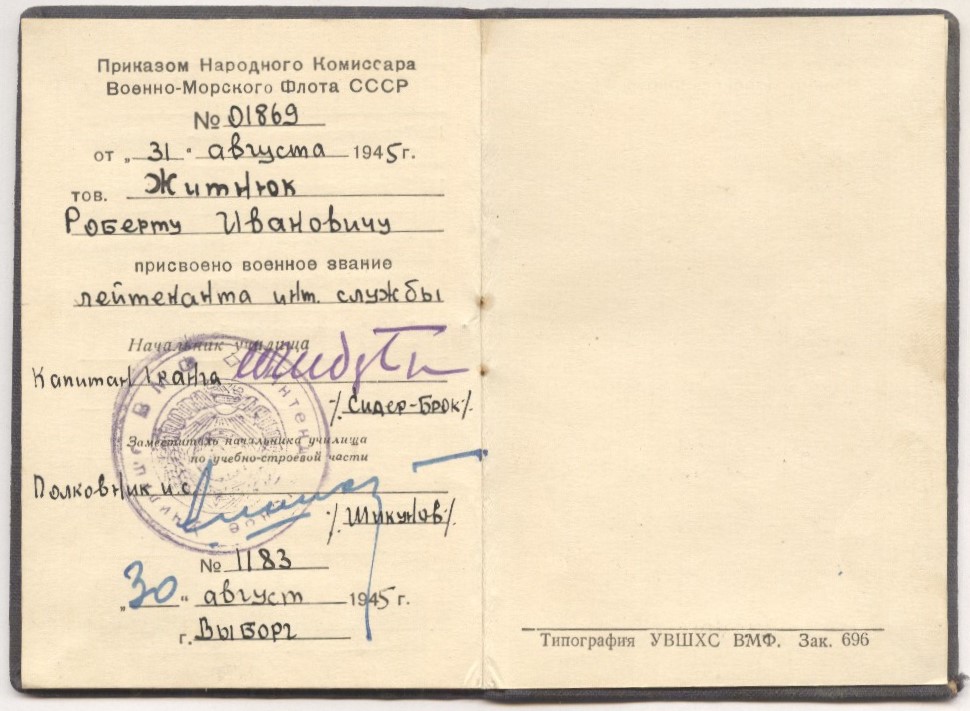 Приказом Народного Комиссара
Военно-Морского Флота СССР
№ 01869
от „31“ августа 1945 г.
тов. Житнюк
Роберту Ивановичу
присвоено военное звание
лейтенанта инт. службы
Начальник училища
Капитан I ранга
/Сидер-Брок/
Заместитель начальника училища
по учебно-строевой части
Полковник и.с.
/Шикунов/
№ 1183
„30“ август 1945 г.
г. Выборг
Типография УВШХС ВМФ. Зак. 696